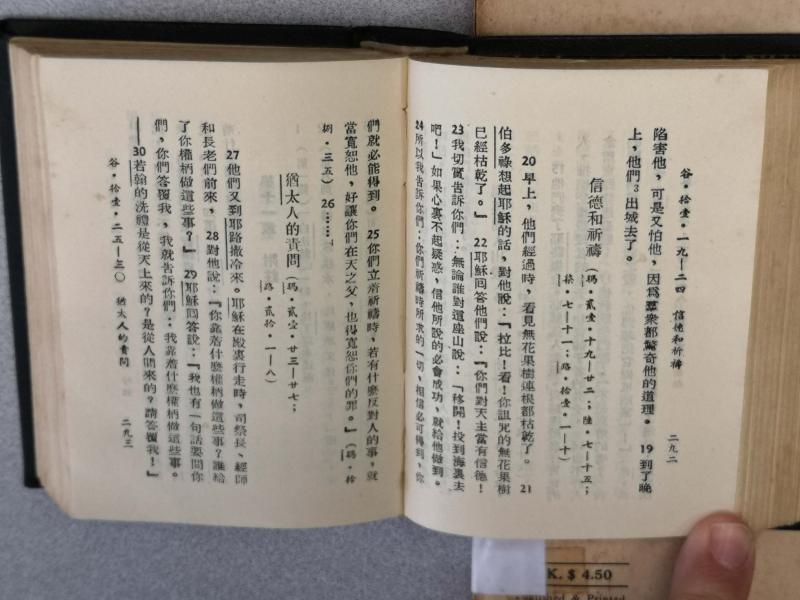 谷·拾壹·一九—二四 信德和祈禱 二九二
陷害他，可是又怕他，因爲羣衆都驚奇他的道理。 19到了晚
上，他們3出城去了。
信德和祈禱（瑪·貳壹·十九—廿二；陸·七—十五；
柒·七—十一；路·拾壹·一—十）
20早上，他們經過時，看見無花果樹連根都枯乾了。 21
伯多祿想起耶穌的話，對他說：『拉比！看！你詛咒的無花果樹
已經枯乾了。』 22耶穌回答他們說：『你們對天主當有信德！
23我切實告訴你們：無論誰對這座山說：「移開！投到海裏去
吧！」如果心裏不起疑惑，信他所說的必會成功，就給他做到。
24所以我告訴你們：你們祈禱時所求的一切，相信必可得到，你
們就必能得到。 25你們立着祈禱時，若有什麽反對人的事，就
當寬恕他，好讓你們在天之父，也得寬恕你們的罪。』（瑪·拾
捌·三五） 26……
猶太人的責問（瑪·貳壹·廿三—廿七；
路·貳拾·一—八）
27他們又到耶路撒冷來。耶穌在殿裏行走時，司祭長、經師
和長老們前來， 28對他說：『你靠着什麽權柄做這些事？誰給
了你權柄做這些事？』 29耶穌回答說：『我也有一句話要問你
們，你們答覆我，我就告訴你們：我靠着什麽權柄做這些事。
30若翰的洗禮是從天上來的？是從人間來的？請答覆我！』
谷·拾壹·二五—三〇 猶太人的責問 二九三
K. $ 4.50
& Printed